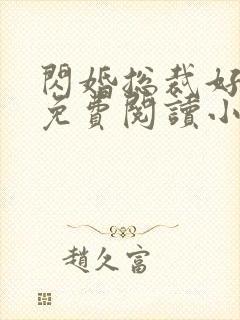 閃婚總裁好
免費閱讀小
趙久富